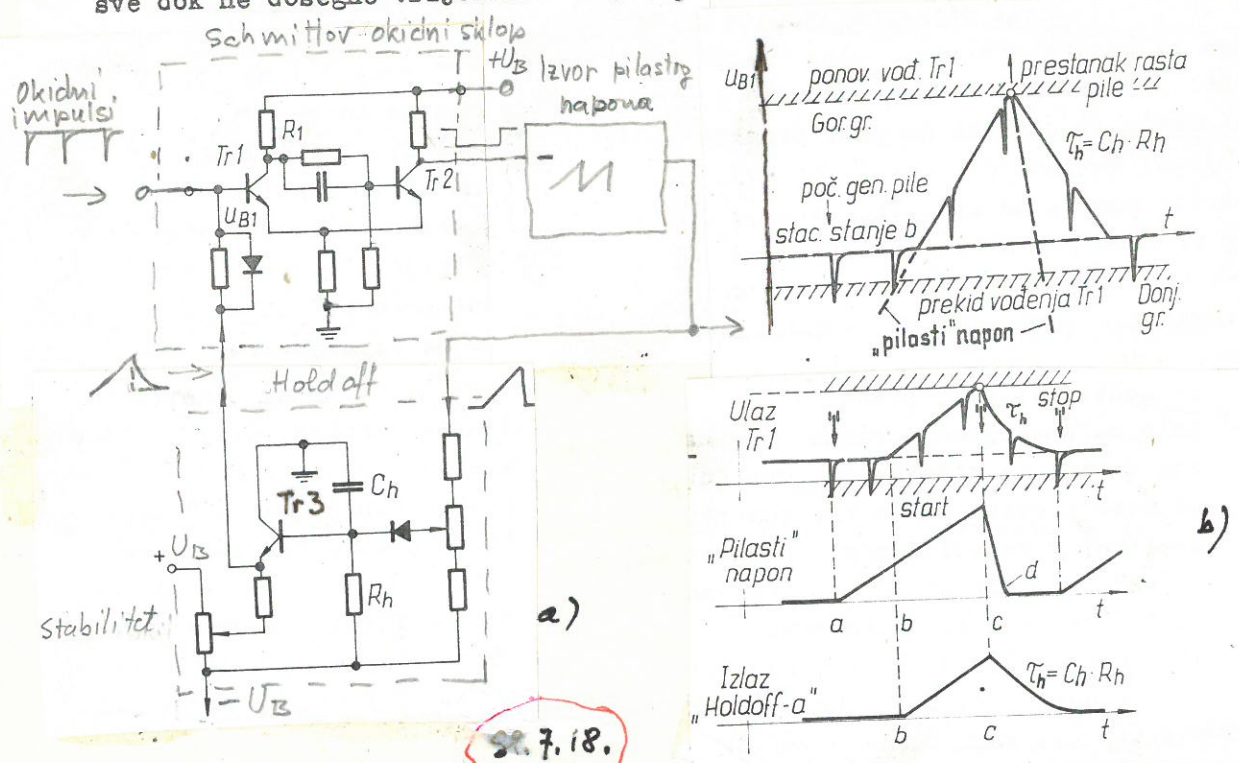 sve dok ne dosegne
Schmittov okidni sklop
Okidni
impulsi
+UB
Izvor pilastog
napona
R1
Tr1
Tr2
uB1
Hold off
Tr3
Ch
Rh
+UB
Stabilitet
= UB
a)
uB1
ponov. vođ. Tr1
prestanak rasta
pile
Gor.gr.
τh= Ch· Rh
poč. gen. pile
stac. stanje b
t
prekid vođenja Tr1
Donj.
gr.
„pilasti" napon
Ulaz
Tr1
τh
stop
t
start
„Pilasti"
napon
d
a
b
c
t
b)
Izlaz
„Holdoff-a"
τh= Ch· Rh
b
c
t
7.18.